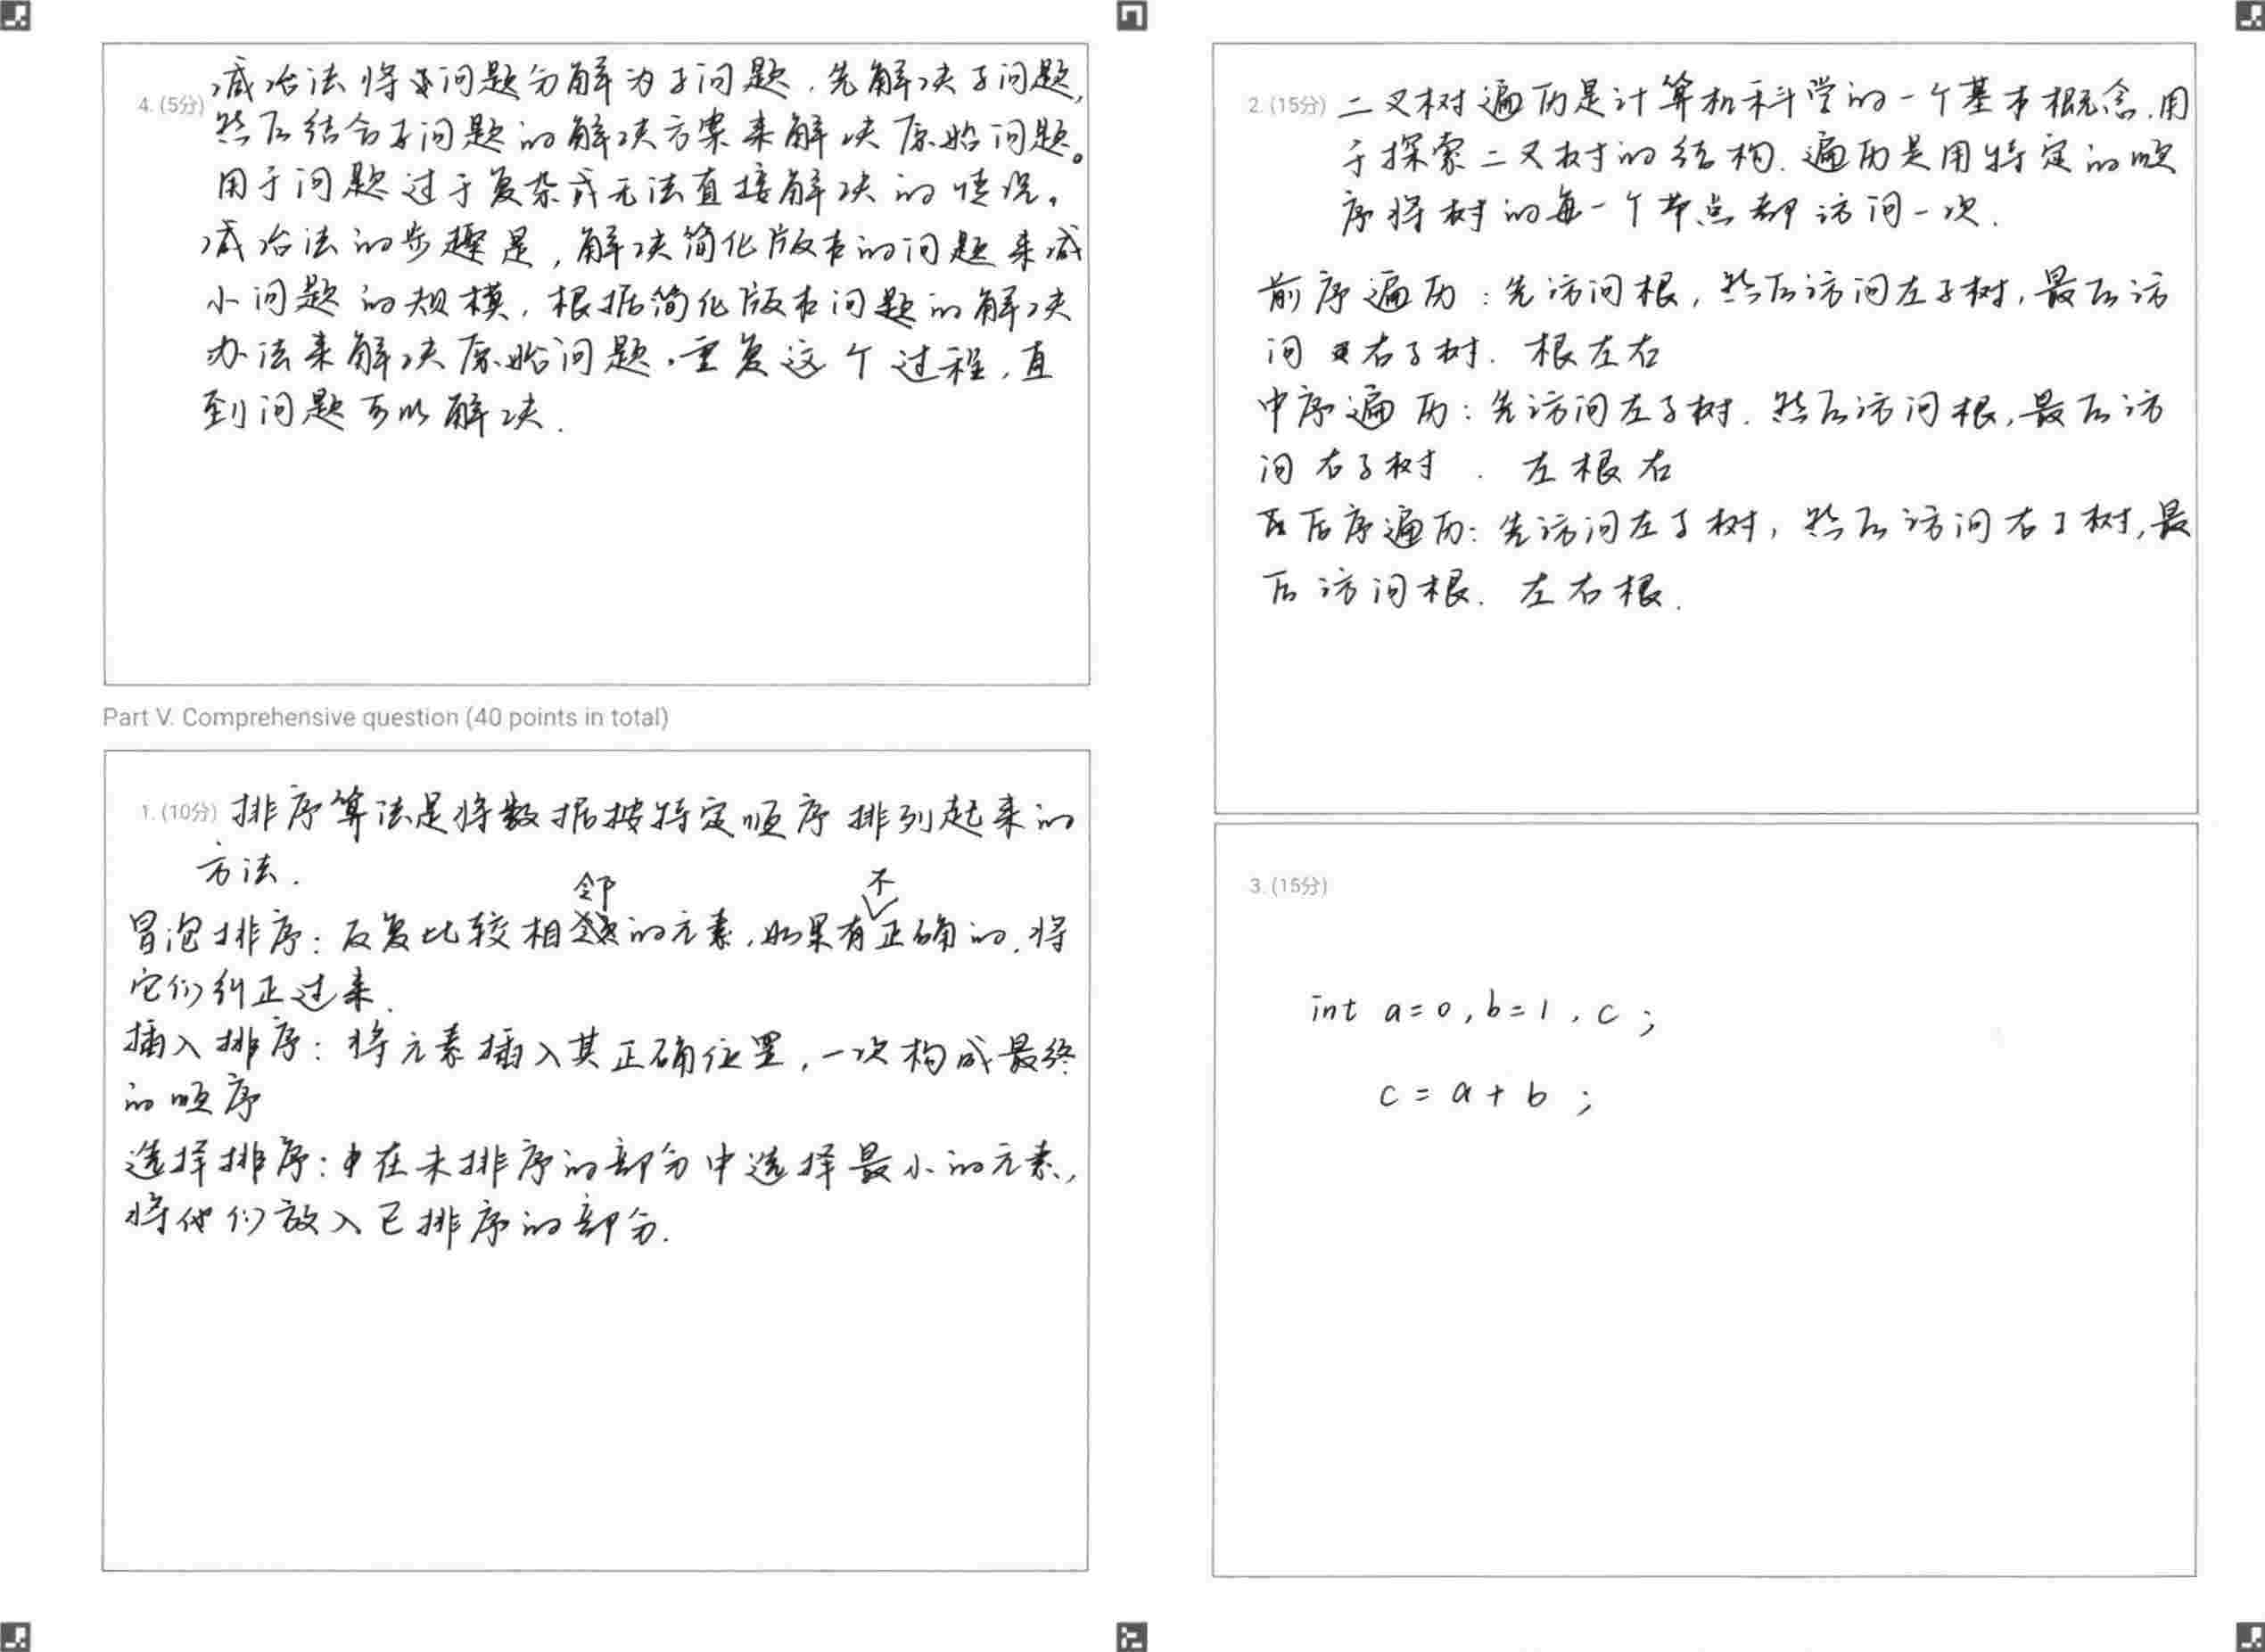 4. (5分) 减治法将问题分解为子问题,先解决子问题,
然后结合子问题的解决方案来解决原始问题。
用于问题过于复杂或无法直接解决的情况。
减治法的步骤是,解决简化版本的问题来减
小问题的规模,根据简化版本问题的解决
办法来解决原始问题,重复这个过程,直
到问题可以解决.
Part V. Comprehensive question (40 points in total)
1. (10分) 排序算法是将数据按特定顺序排列起来的
方法.
冒泡排序: 反复比较相邻的元素,如果有不正确的,将
它们纠正过来.
插入排序: 将元素插入其正确位置,一次构成最终
的顺序
选择排序: 在未排序的部分中选择最小的元素,
将他们放入已排序的部分.
2. (15分) 二叉树遍历是计算机科学的一个基本概念,用
于探索二叉树的结构. 遍历是用特定的顺
序将树的每一个节点都访问一次.
前序遍历: 先访问根,然后访问左子树,最后访
问右子树. 根左右
中序遍历: 先访问左子树. 然后访问根,最后访
问右子树. 左根右
后序遍历: 先访问左子树,然后访问右子树,最
后访问根. 左右根.
3. (15分)
int a=0, b=1, c;
c = a + b ;